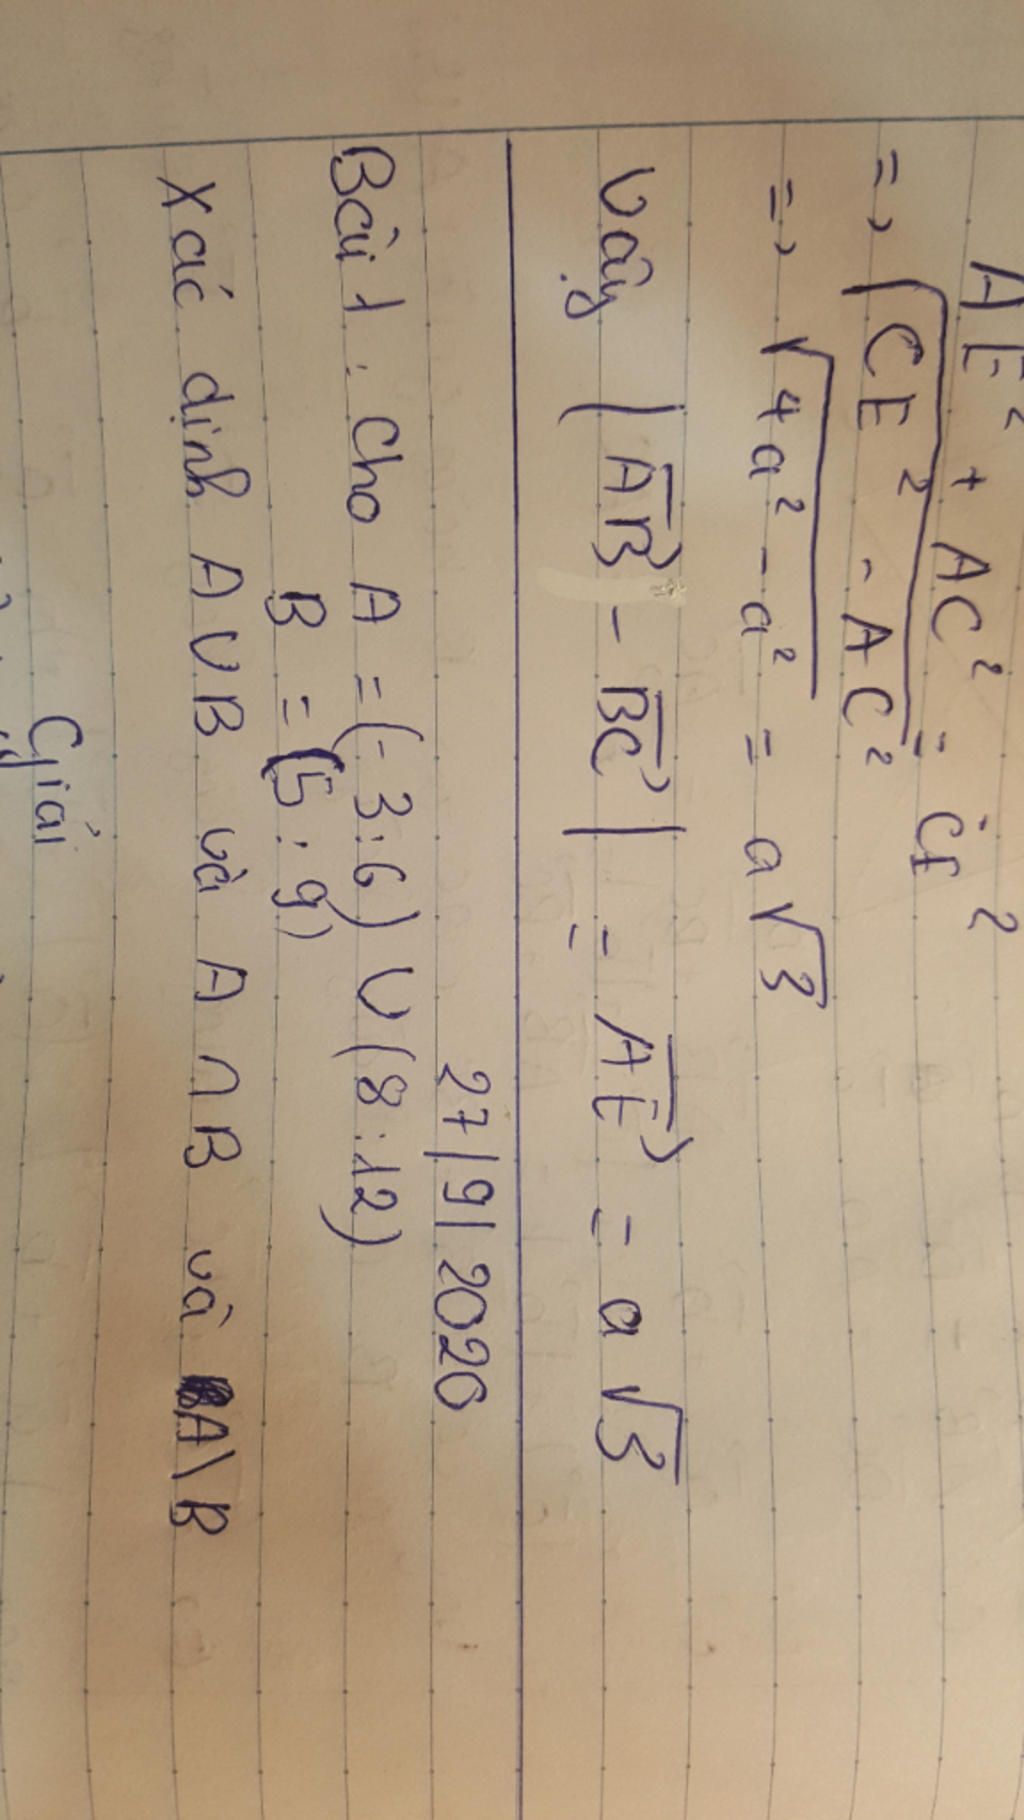 AE² + AC² = CE²
=> √CE² - AC²
=> √4a² - a² = a√3
Vậy |AB - BC| = AE = a√3
27/9/2020
Bài 1: Cho A = (-3:6) ∪ (8:12)
B = (5:9)
Xác định A ∪ B và A ∩ B và A\B
Giải